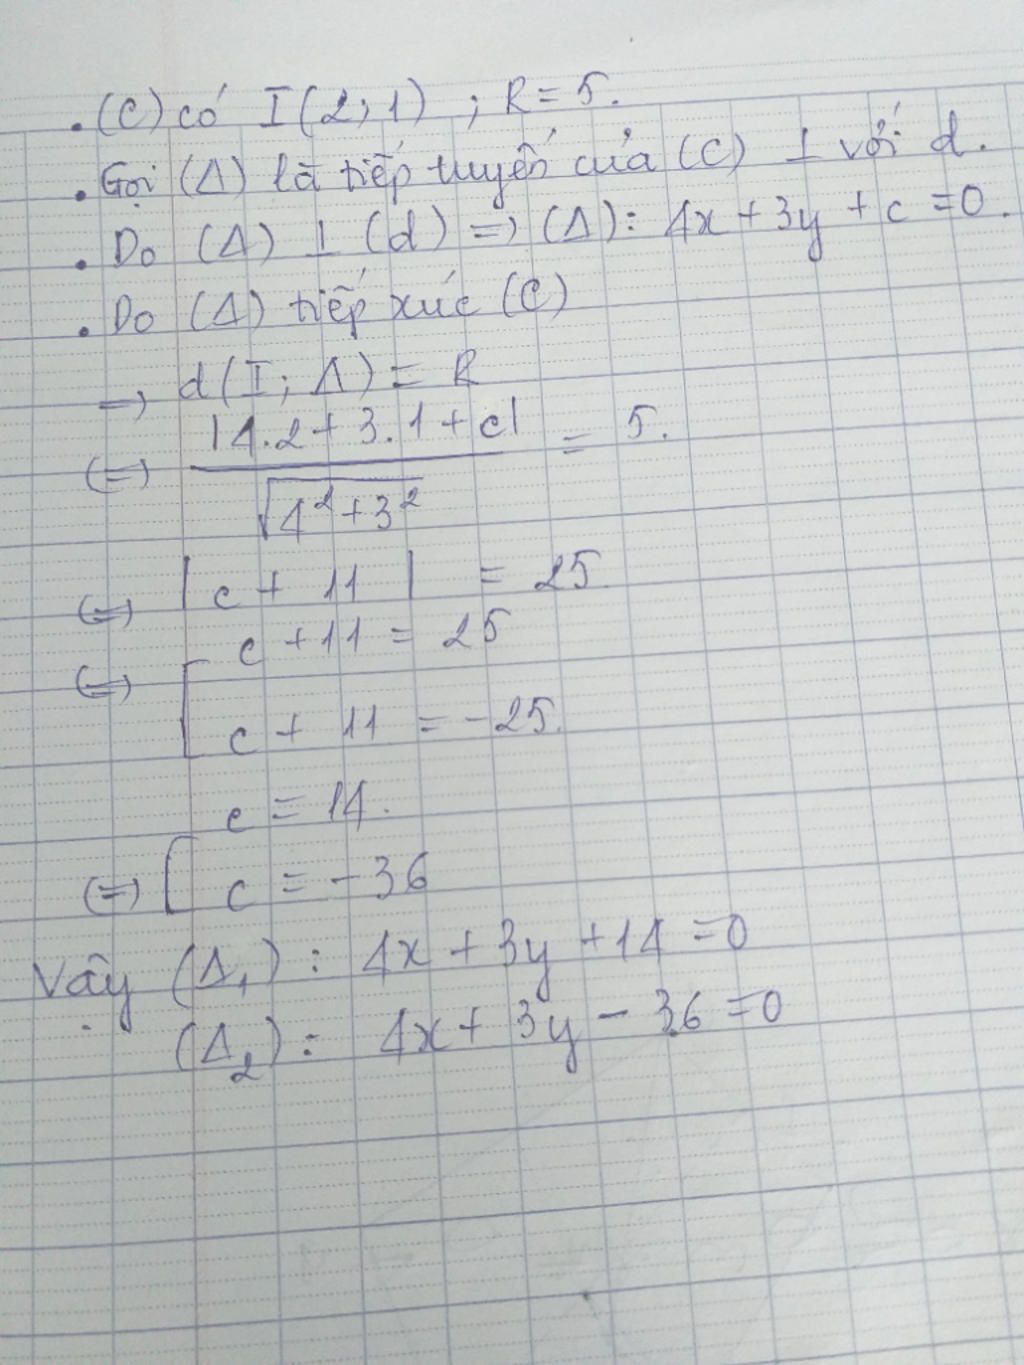 . (C) có I(2;1) ; R = 5.
. Gọi (Δ) là tiếp tuyến của (C) ⊥ với d.
. Do (Δ) ⊥ (d) => (Δ): 4x + 3y + c = 0.
. Do (Δ) tiếp xúc (C)
=> d(I; Δ) = R
(=) |4.2 + 3.1 + c| / √(4² + 3²) = 5.
(=) |c + 11| = 25.
(=) [ c + 11 = 25
c + 11 = -25.
(=) [ c = 14.
c = -36
Vậy (Δ₁): 4x + 3y + 14 = 0
(Δ₂): 4x + 3y - 36 = 0